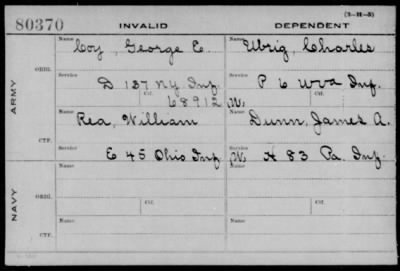 80370 INVALID DEPENDENT (3—11—5)
Name Name
Coy, George E. Ulrig, Charles
ORIG.
Service Service
D 137 N.Y. Inf. P 6 W Va Inf.
Ctf. 68912 Ctf. W.
ARMY
Name Name
Rea, William Dunn, James A.
CTF.
Service Service
E 45 Ohio Inf. W. H 83 Pa. Inf.
Name Name
ORIG.
Service Ctf. Service Ctf.
NAVY
Name Name
CTF.
Service Service